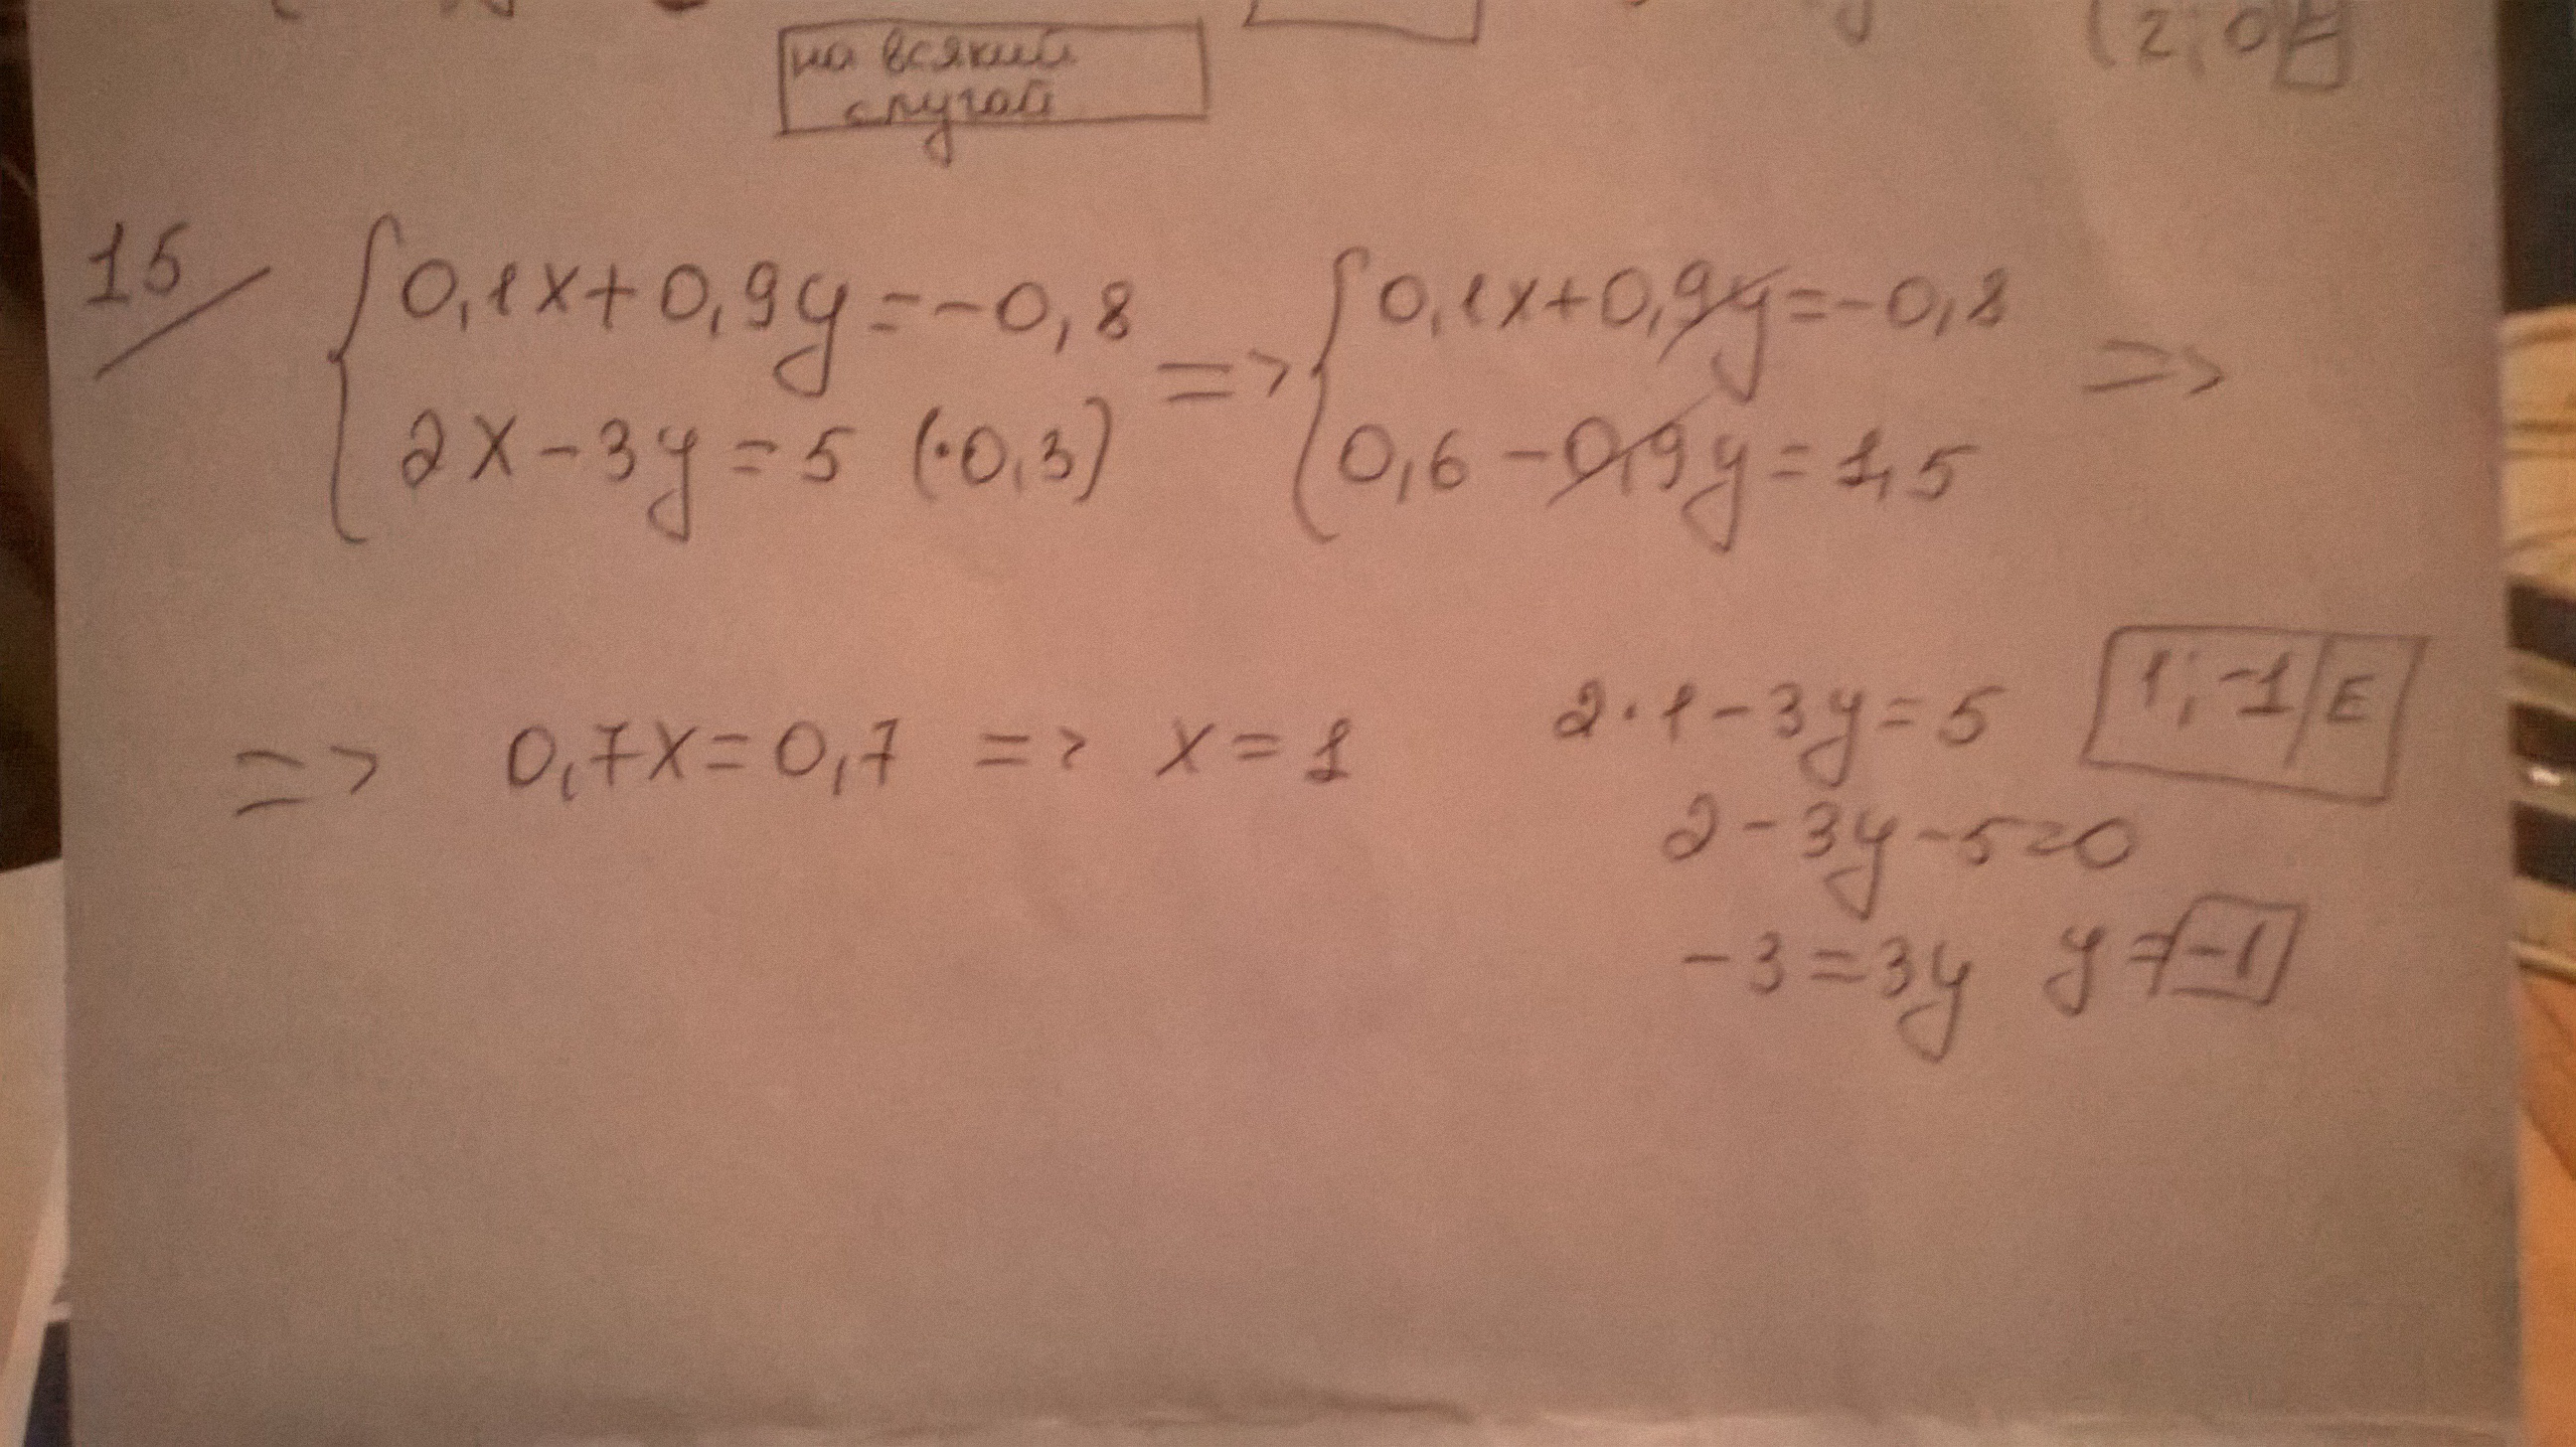 на всякий
случай
(2; 0)
15
0,1x+0,9y=-0,8
2x-3y=5 (·0,3)
=>
0,1x+0,9y=-0,8
0,6-0,9y=1,5
=>
=> 0,7x=0,7 => x=1
2·1-3y=5
1; -1 E
2-3y-5=0
-3=3y y=-1